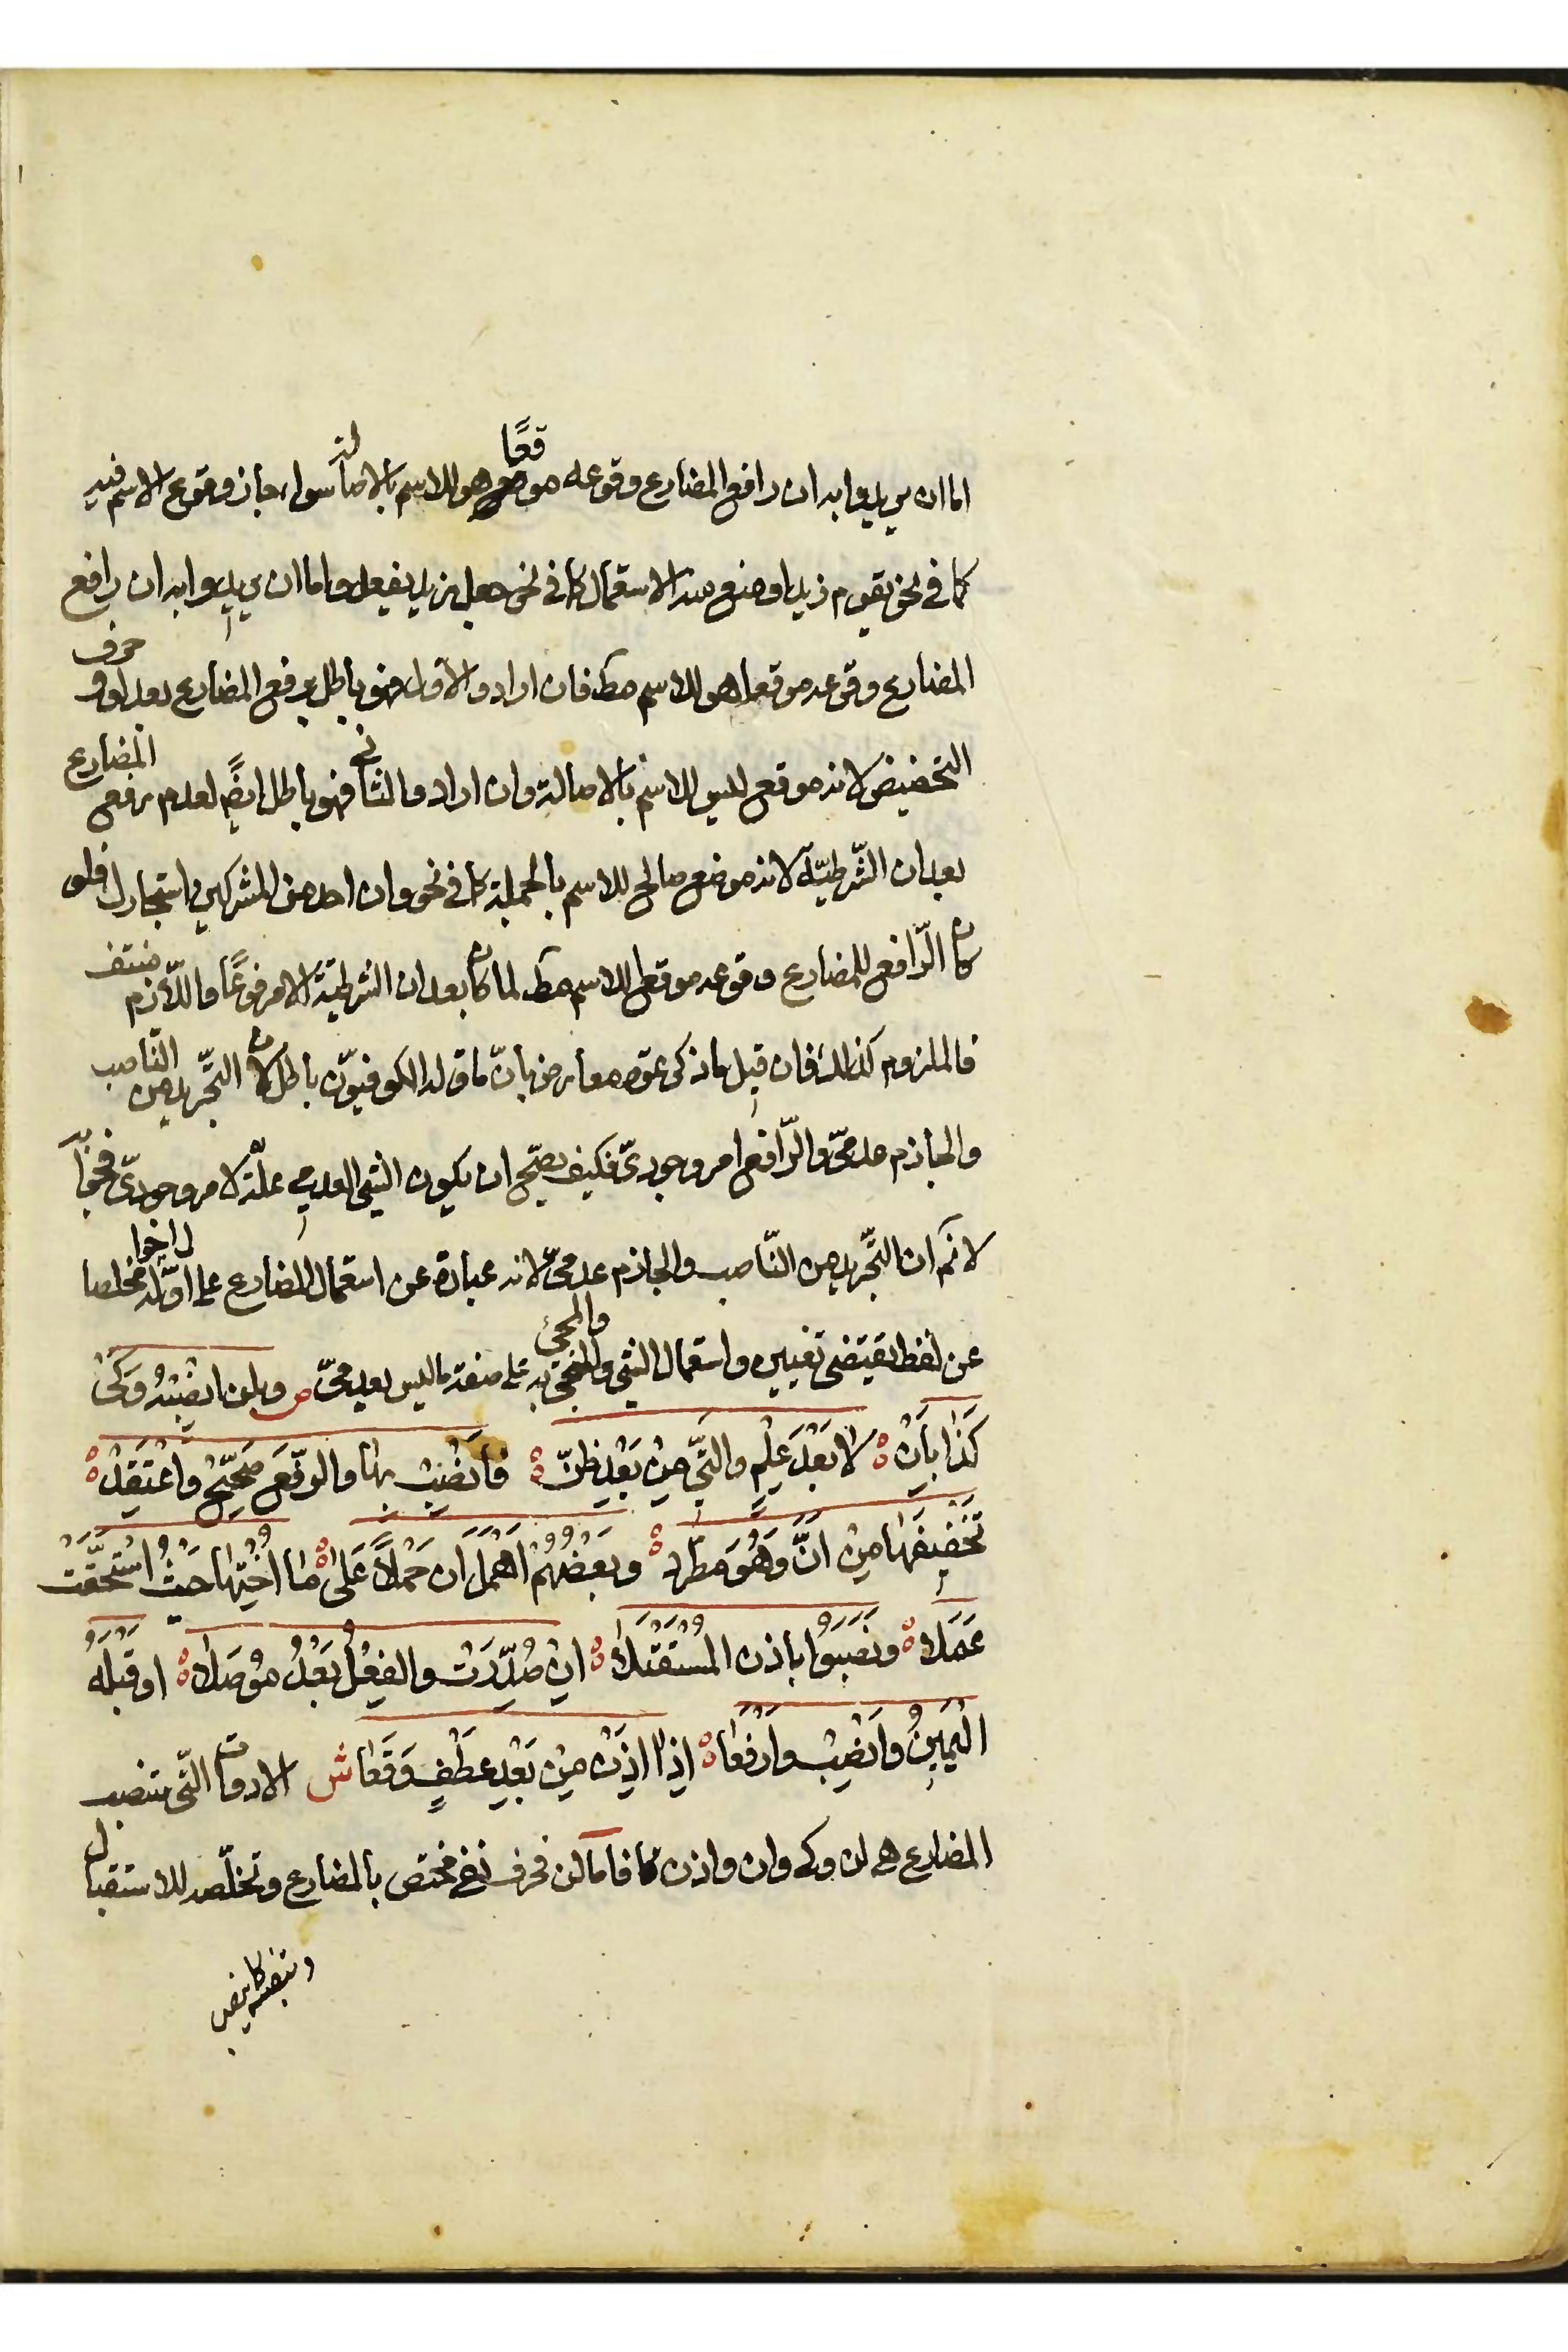 اما ان يريدوا به ان رافع المضارع وقوعه موقعًا هو للاسم بالاصالة سواء جاز وقوع الاسم فيه
كما فى نحو يقوم زيد او منع منه الاستعمال كما فى نحو جعل زيد يفعل واما ان يريدوا به ان رافع
المضارع وقوعه موقعا هو للاسم مط فان ارادوا الاول فهو باطل برفع المضارع بعد لو و حرف
التحضيض لانه موقع ليس للاسم بالاصالة وان ارادوا الثانى فهو باطل ايضً لعدم رفع المضارع
بعد ان الشّرطيّة لانه موضع صالح للاسم بالجملة كما فى نحو وان احد من المشركين استجارك فلو
كان الرّافع للمضارع وقوعه موقعا للاسم مط لما كان بعد ان الشرطيّة الا مرفوعًا واللّازم منتف
فالملزوم كذلك فان قيل ما ذكرتموه معارض بانّ ما قاله الكوفيّون باطل لان التّجريد من النّاصب
والجازم عدمىّ والرّافع امر وجودىّ فكيف يصحّ ان يكون الشئ العدمى علّة لامر وجودىّ فجوابه
لا نم ان التّجريد من النّاصب والجازم عدمىّ لانه عبارة عن استعمال المضارع على اوّل احواله مخلصا
عن لفظ يقتضى تغييره واستعمال الشئ والمجئ به على صفة ما ليس بعدمىّ ص وبلن انْصِبْهُ وَكَىْ
كَذَا بِاَنْ ه لا بَعْدَ عِلْمٍ والتَّى مِنْ بَعْدِ ظَنّ ه فَانْصِبْ بها والرّفعَ صَحِّحْ واعْتَقِدْ ه
تَخْفِيفَهَا مِنْ اَنَّ وَهُوَ مطّرد ه وبَعْضُهُمْ اَهْمَلَ ان حَمْلًا عَلَى ه مَا اُخْتِهَا حَيْثُ اسْتَحَقَّتْ
عَمَلَا ه ونَصَبُوا باذن المُسْتَقْبَلَا ه ان صُدِّرَتْ والفِعْلُ بَعْدُ مُوْصَلَا ه او قَبْلَهُ
اليَمِينُ وانْصِبْ وارْفَعَا ه اِذَا اِذَنْ مِنْ بَعْدِ عَطْفٍ وَقَعَا ش الادوات الّتى ينتصب
المضارع هى لن وكى وان واذن فاما لن فحرف نفى مختص بالمضارع وتخلّصه للاستقبال
وينصبه كما ينصب